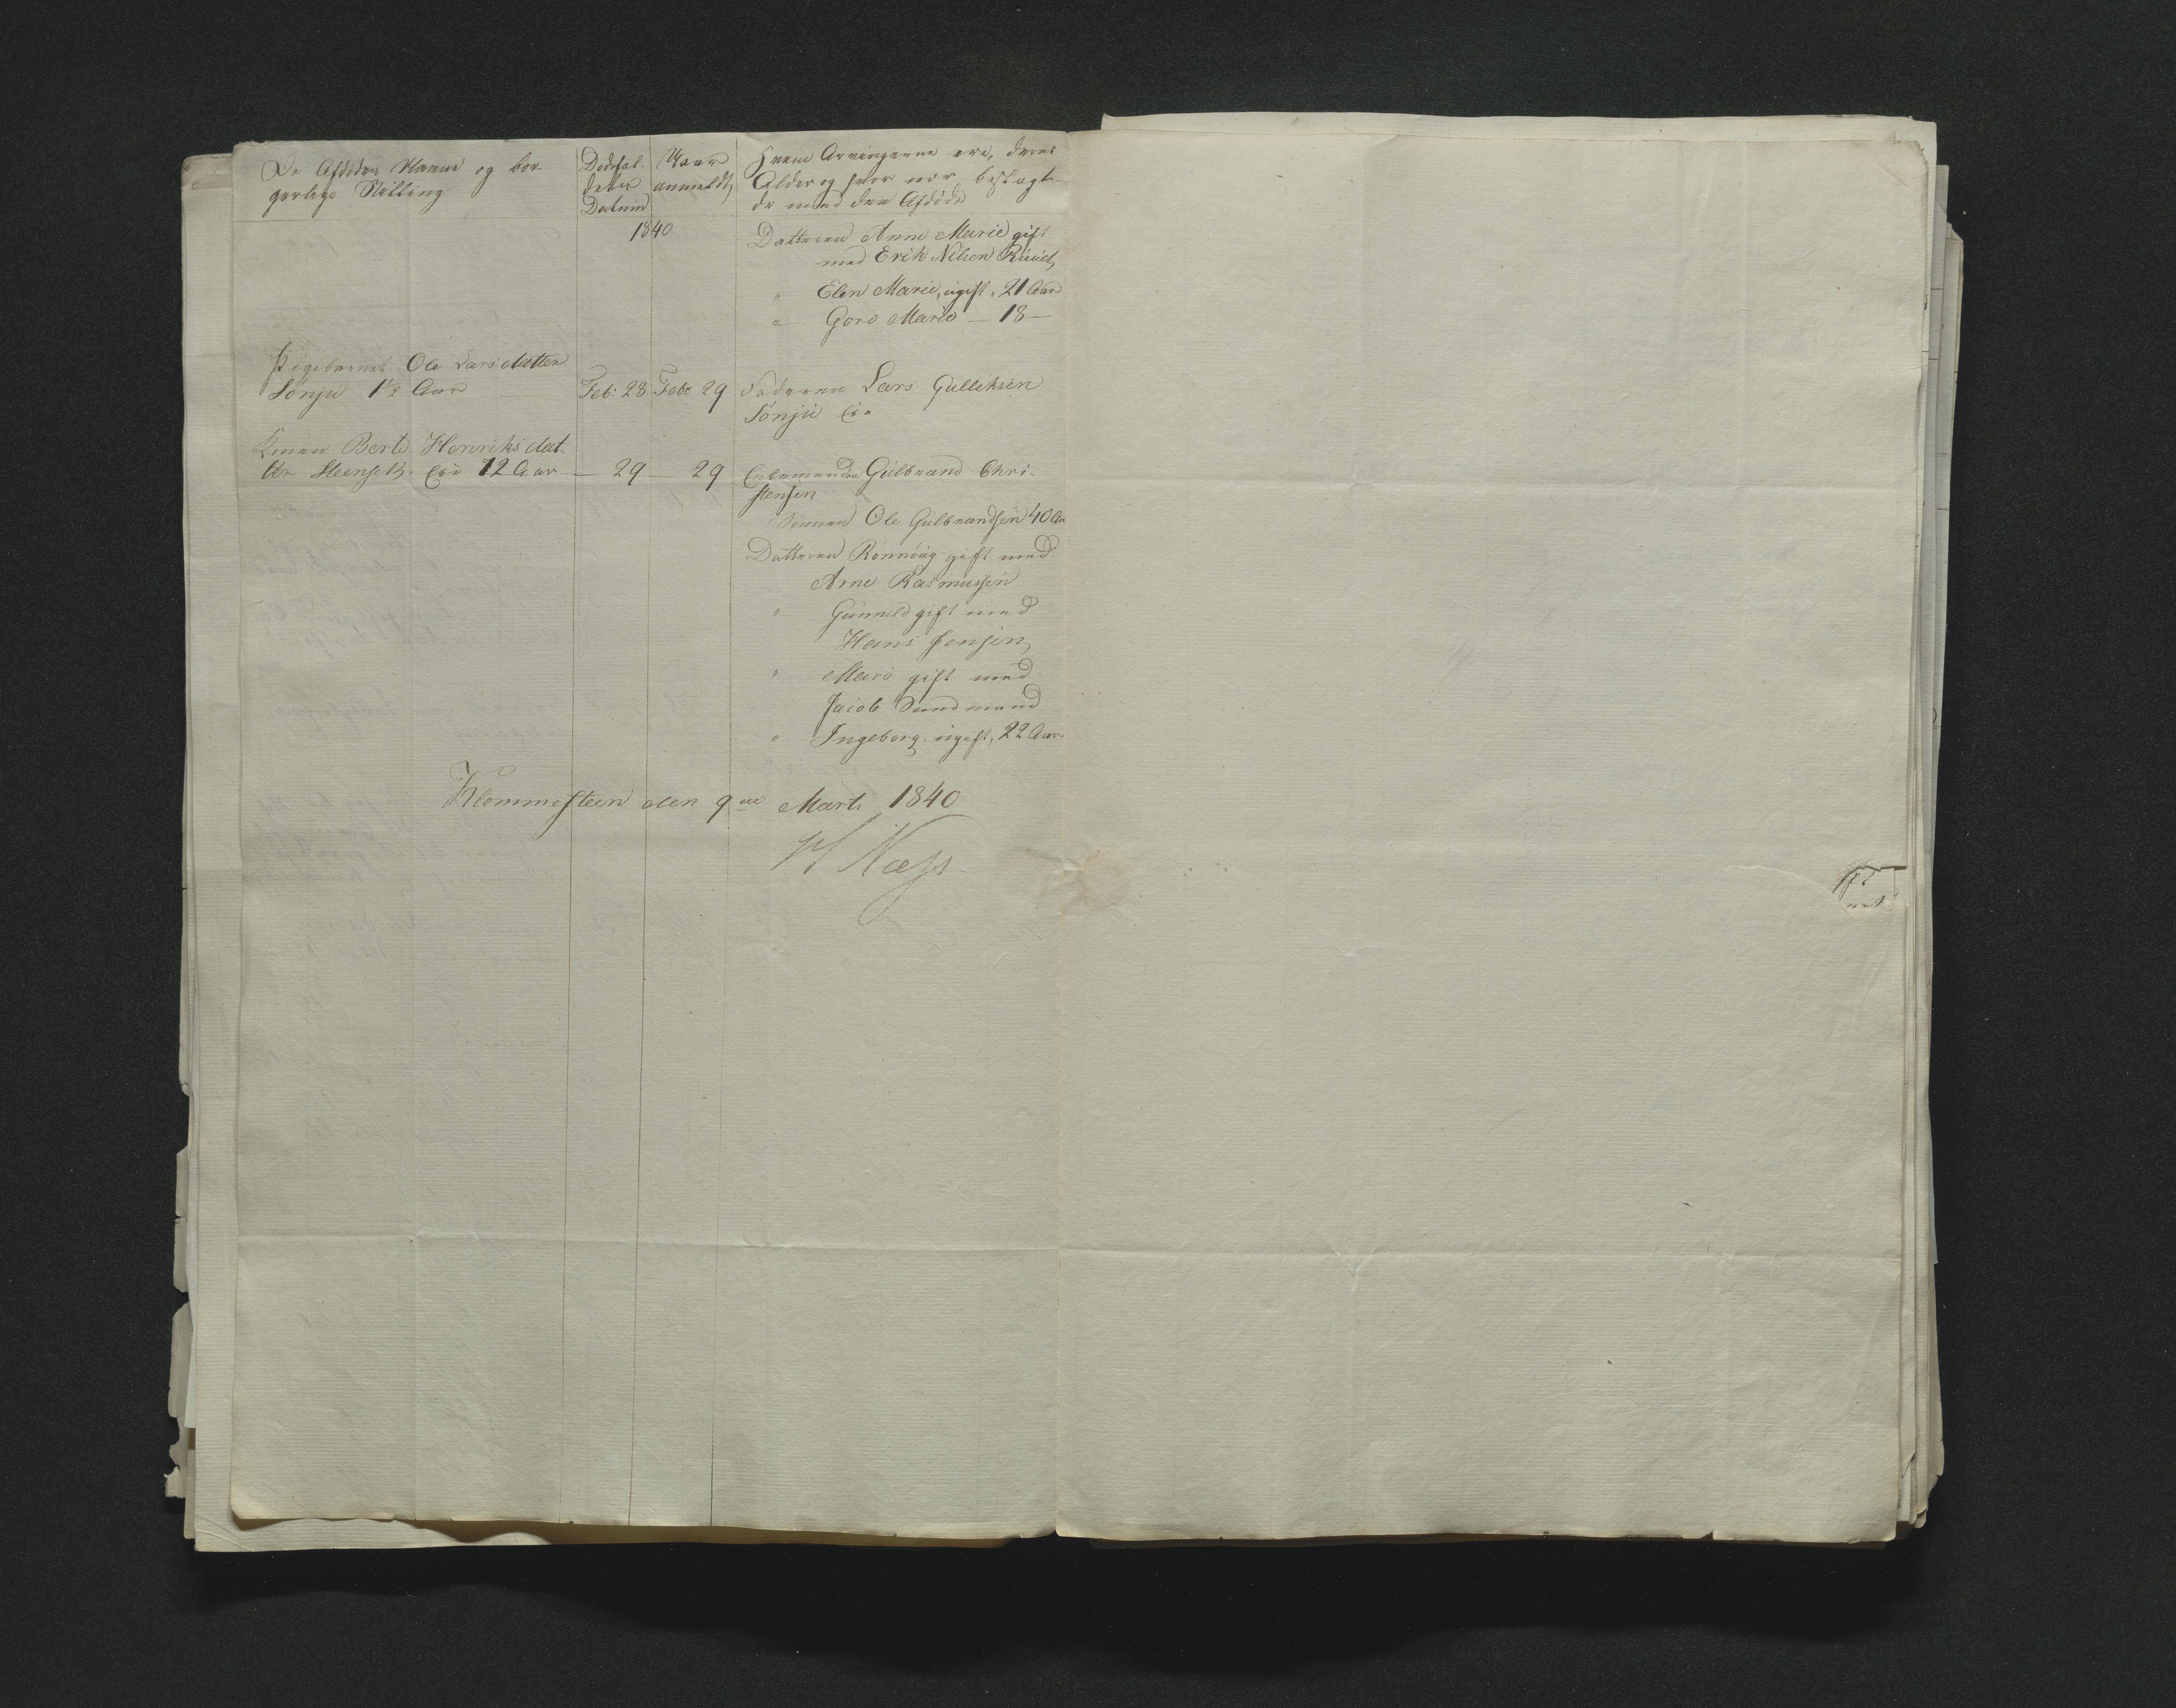 De Afdødes Navne og bor-
gerlige Stilling
Dødsfal-
denes
Datum
Naar
anmeldt
Hvem Arvingerne ere, deres
Alder og hvor nær beslægte-
de med den Afdøde
1840
Datteren Anne Marie gift
med Erik Nilsen
" Elen Marie, ugift, 21 Aar
" Goro Marie — 18 —
Pigebarnet Ole Larsdatter
Sönju 1½ Aar Feb: 28 Febr 29 Faderen Lars Gulliksen
Sönju Eie
Konen Berte Henriksdat-
ter Steinset Eie 72 Aar — 29 — 29 Enkemanden Gulbrand Chri-
stensen
Sönnen Ole Gulbrandsen 40 Aar
Datteren Rönnoug gift med
Arne Rasmussen
" Gunnild gift med
Hans Jensen,
" Mari gift med
Jacob Sundmand
" Ingeborg, ugift, 22 Aar
Klommesteen den 9de Marts 1840
H Næss